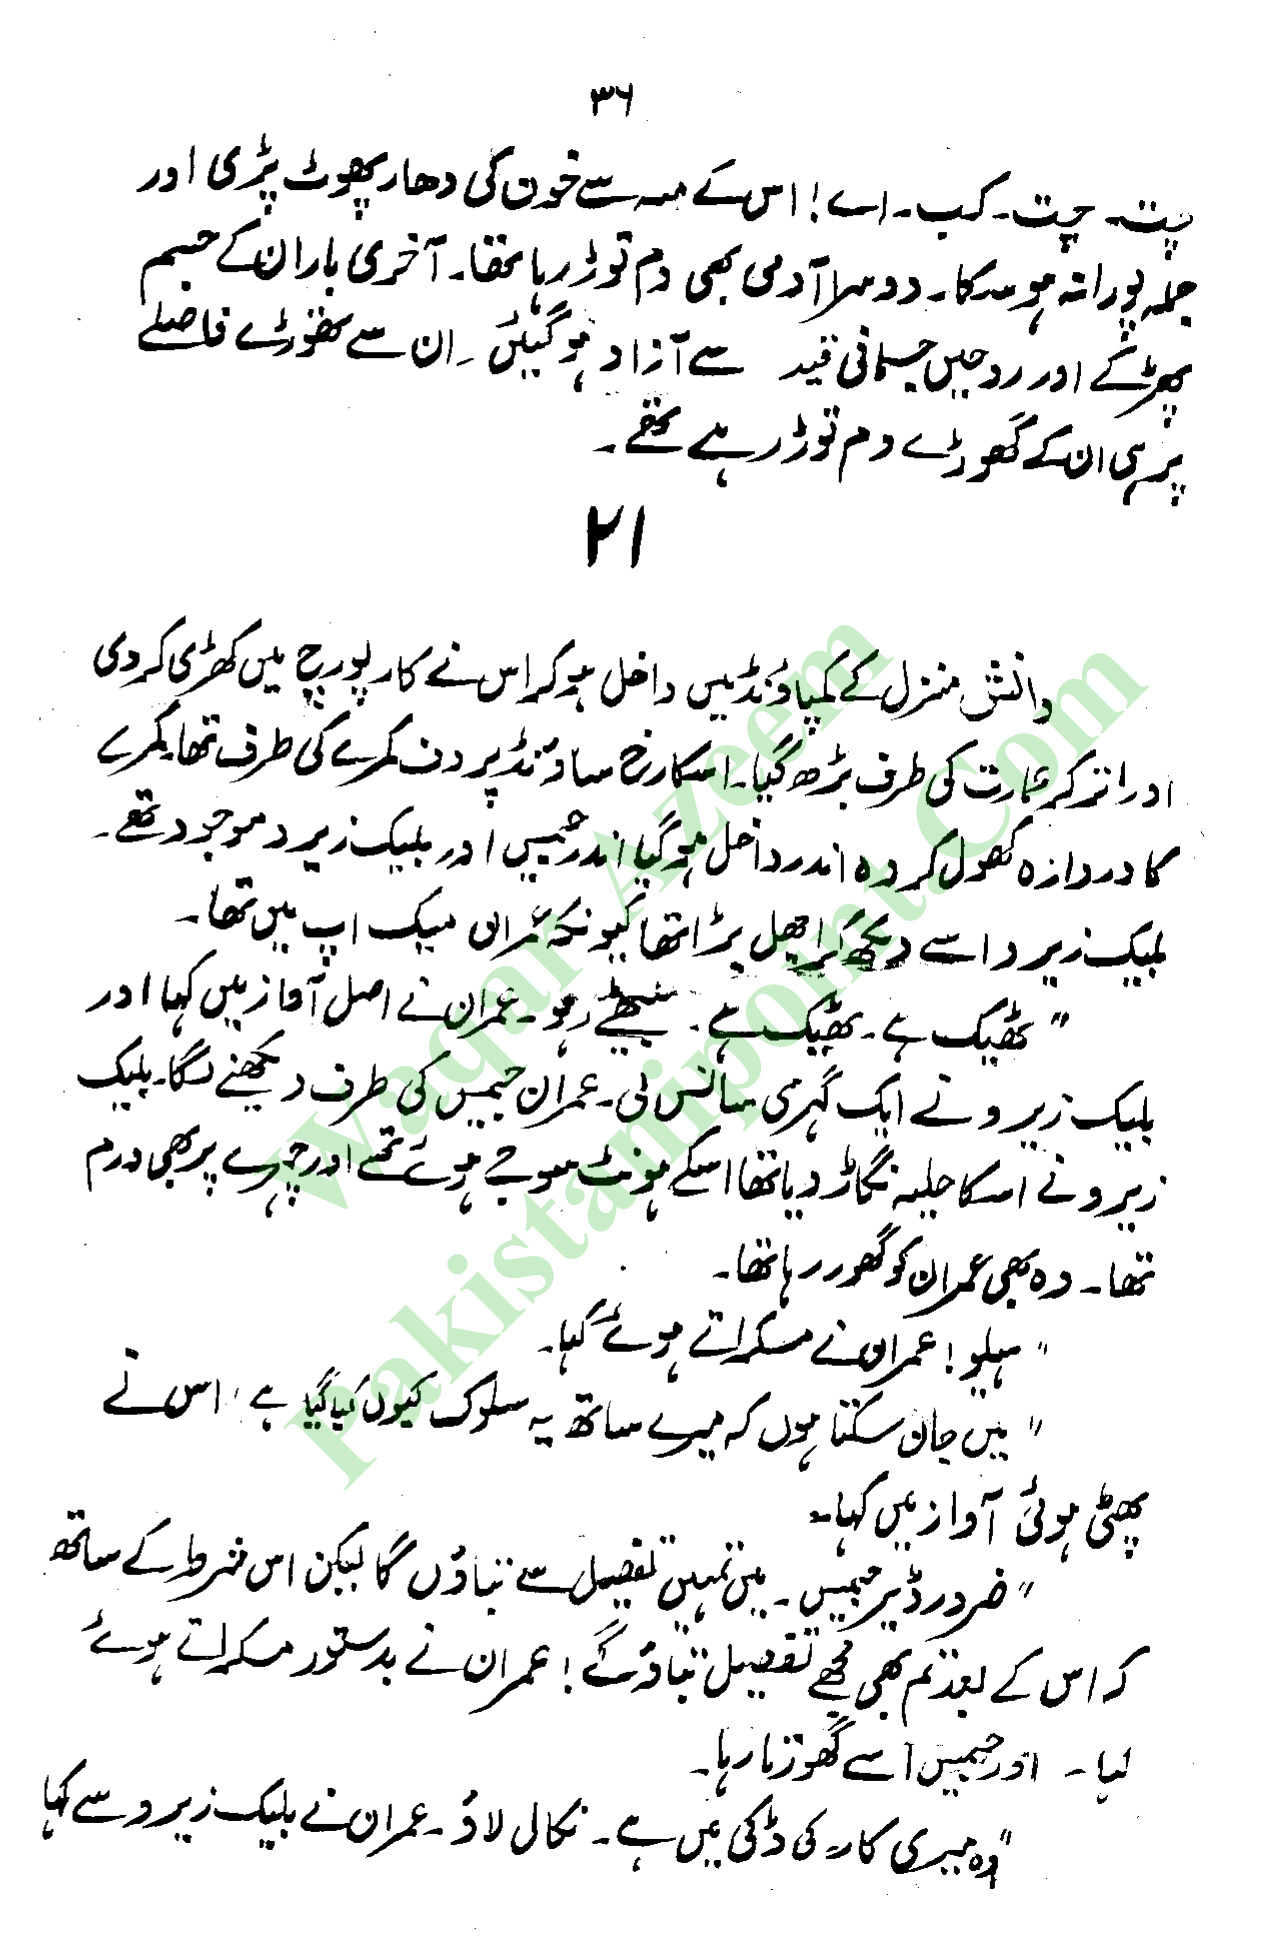 ۳۶
پت۔ چت۔ کب۔ اے! اس کے منہ سے خون کی دھار پھوٹ پڑی اور
جملہ پورا نہ ہو سکا۔ دوسرا آدمی بھی دم توڑ رہا تھا۔ آخری بار ان کے جسم
پھڑکے اور روحیں جسمانی قید سے آزاد ہو گئیں۔ ان سے تھوڑے فاصلے
پر ہی ان کے گھوڑے دم توڑ رہے تھے۔
۲۱
دانش منزل کے کمپاؤنڈ میں داخل ہو کر اس نے کار پورچ میں کھڑی کر دی
اور اتر کر عمارت کی طرف بڑھ گیا۔ اسکا رخ ساؤنڈ پروف کمرے کی طرف تھا۔ کمرے
کا دروازہ کھول کر وہ اندر داخل ہو گیا اندر جیمس اور بلیک زیرو موجود تھے۔
بلیک زیرو اسے دیکھ کر اچھل پڑا تھا کیونکہ عمران میک اپ میں تھا۔
"ٹھیک ہے۔ ٹھیک ہے۔ بیٹھے رہو۔ عمران نے اصل آواز میں کہا اور
بلیک زیرو نے ایک گہری سانس لی۔ عمران جیمس کی طرف دیکھنے لگا۔ بلیک
زیرو نے اسکا حلیہ بگاڑ دیا تھا اسکے ہونٹ سوجے ہوئے تھے اور چہرے پر بھی ورم
تھا۔ وہ بھی عمران کو گھور رہا تھا۔
"ہیلو! عمران نے مسکراتے ہوئے کہا۔
"میں جان سکتا ہوں کہ میرے ساتھ یہ سلوک کیوں کیا گیا ہے! اس نے
پھٹی ہوئی آواز میں کہا۔
"ضرور ڈیر جیمس۔ میں تمہیں تفصیل سے بتاؤں گا لیکن اس شرط کے ساتھ
کہ اس کے بعد تم بھی مجھے تفصیل بتاؤ گے! عمران نے بدستور مسکراتے ہوئے
کہا۔ اور جیمس اسے گھورتا رہا۔
"وہ میری کار کی ڈکی میں ہے۔ نکال لاؤ۔ عمران نے بلیک زیرو سے کہا
Waqar Azeem
Pakistanipoint.Com